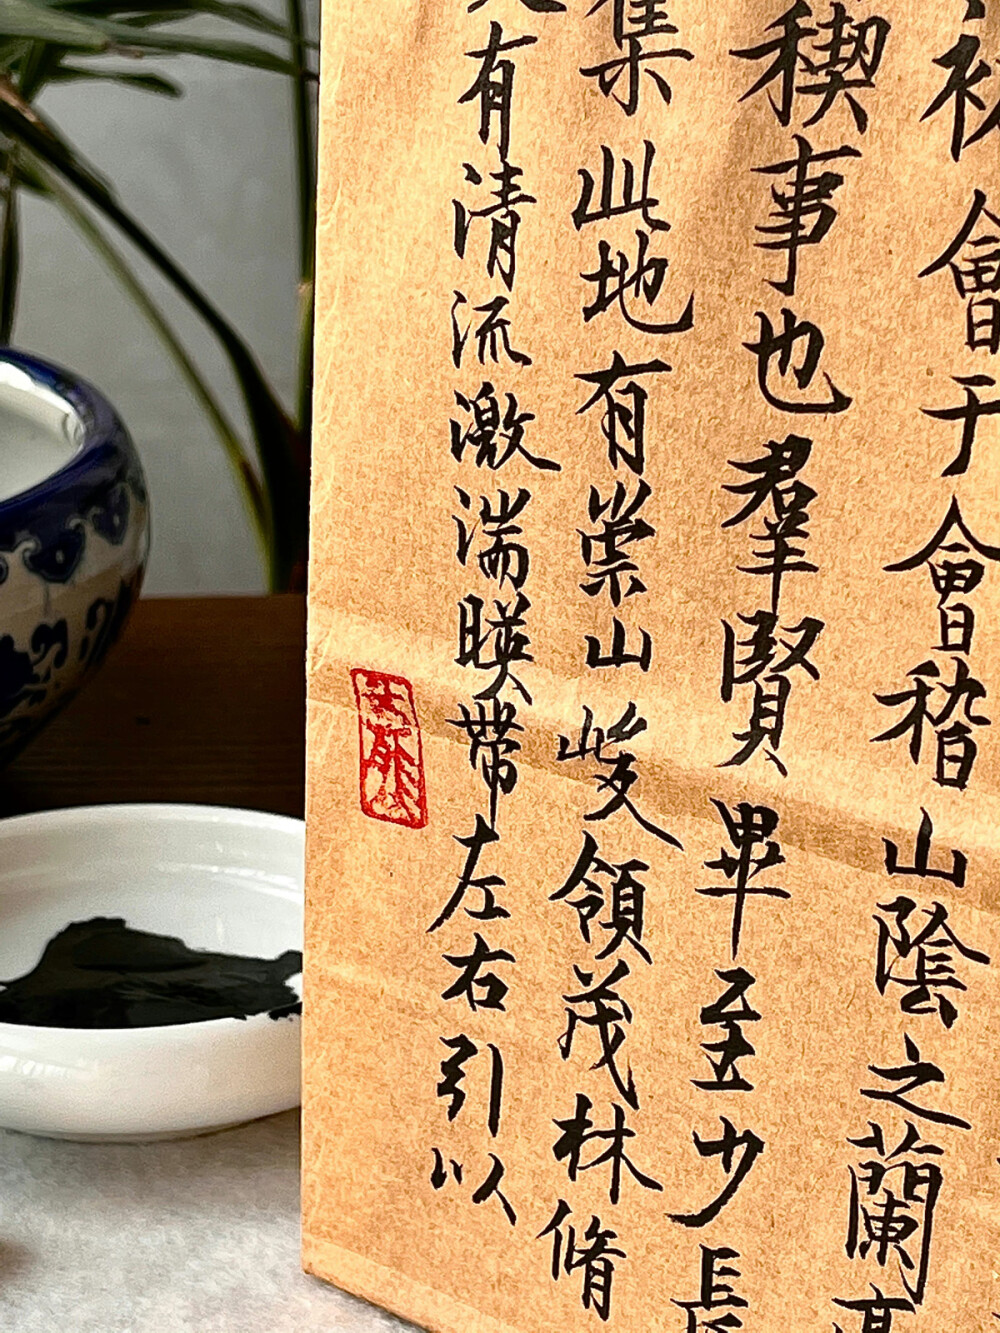 初會于會稽山陰之蘭亭
稧事也羣賢畢至少長
集此地有崇山峻領茂林脩
有清流激湍暎帶左右引以